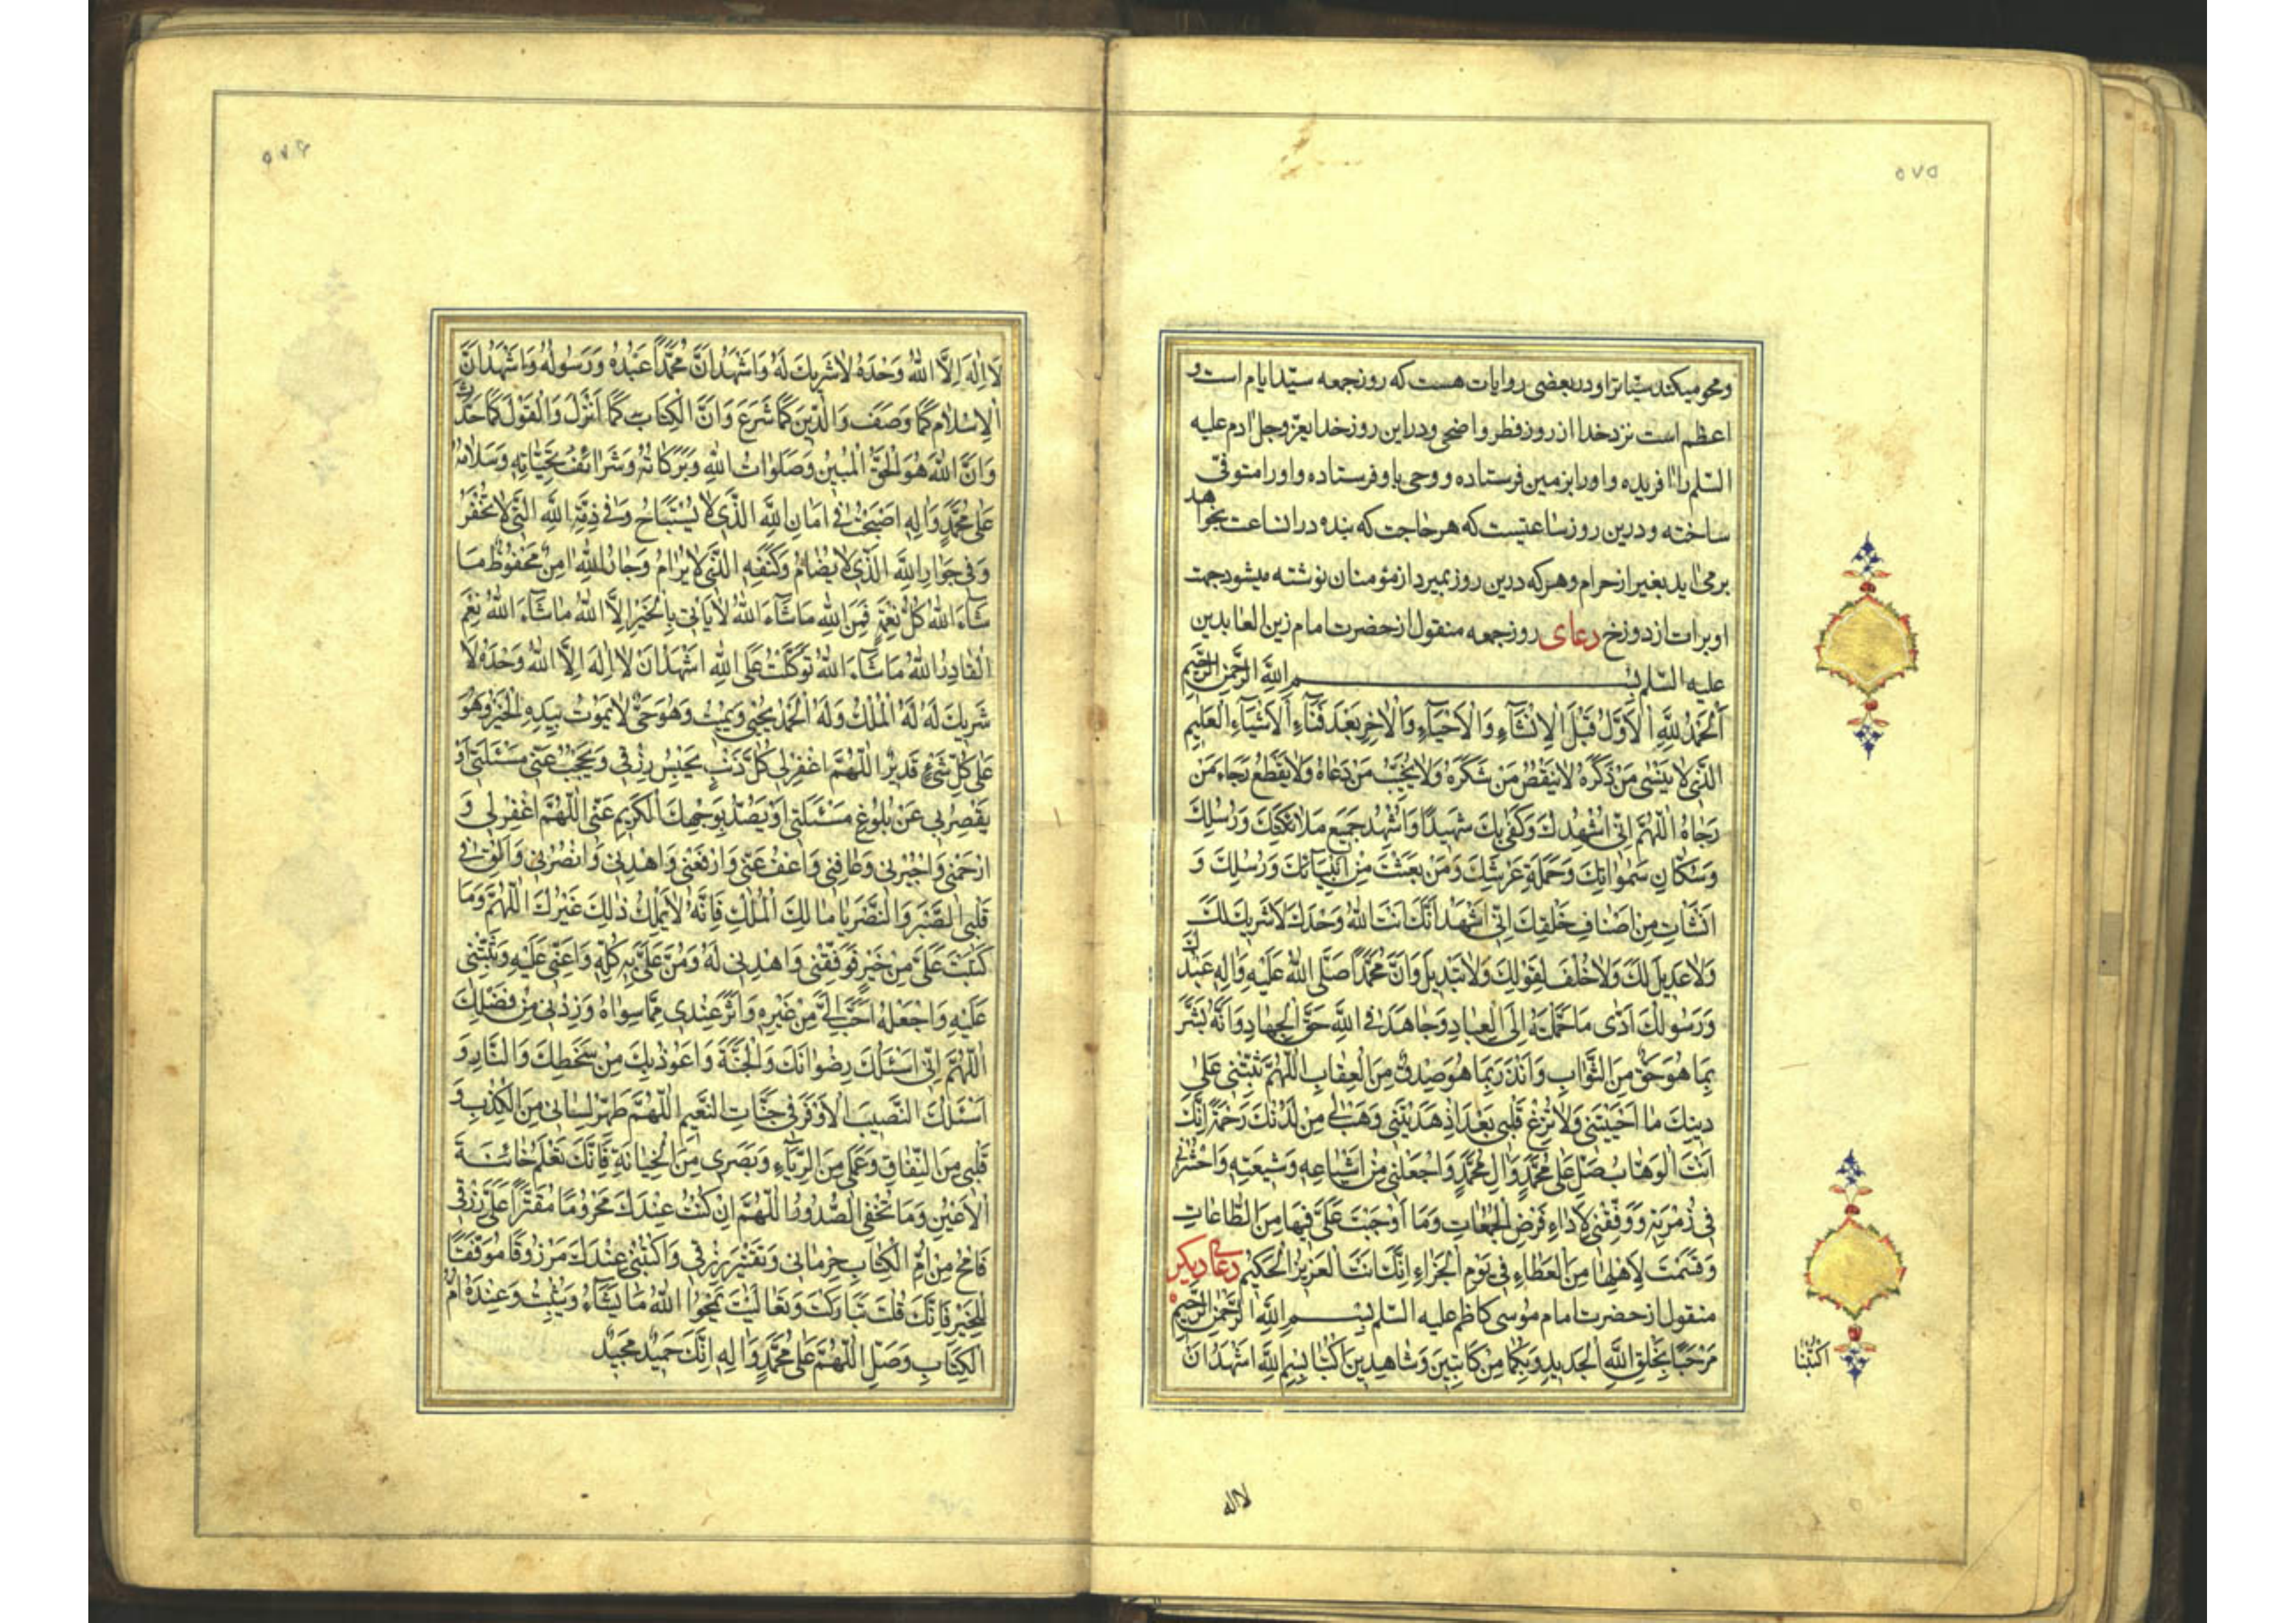 ٥٧٥
ومحو میکند سیّاتراو در بعضی روایات هست که روز جمعه سیّد ایام است و
اعظم است نزد خدا از روز فطر و اضحی و دراین روز خدا یعزّوجل ادم علیه
السّلم را افریده و اورا بزمین فرستاده و وحی باو فرستاده و اورا متوفیّ
ساخته و درین روز ساعتیست که هر حاجت که بنده دران ساعت بخواهد
برمی اید بغیر از حرام و هرکه درین روز بمیرد از مؤمنان نوشته میشود جهت
او برات از دوزخ دعای روز جمعه منقول از حضرت امام زین العابدین
علیه السّلم بِسْمِ اللهِ الرَّحْمٰنِ الرَّحِیمِ
اَلْحَمْدُ لِلّٰهِ الْاَوَّلِ قَبْلَ الْاِنْشَآءِ وَالْاَحْیَآءِ وَالْاٰخِرِ بَعْدَ فَنَآءِ الْاَشْیَآءِ الْعَلِیمِ
الَّذِی لَا یَنْسٰی مَنْ ذَکَرَهُ لَایَنْقُصُ مَنْ شَکَرَهُ وَلَا یُخَیِّبُ مَنْ دَعَاهُ وَلَا یَقْطَعُ رَجَاءَ مَنْ
رَجَاهُ اَللّٰهُمَّ اِنِّی اُشْهِدُكَ وَکَفٰی بِكَ شَهِیدًا وَاُشْهِدُ جَمِیعَ مَلٰائِکَتِكَ وَرُسُلِكَ
وَسُکَّانِ سَمٰوَاتِكَ وَحَمَلَةِ عَرْشِكَ وَمَنْ بَعَثْتَ مِنْ اَنْبِیَآئِكَ وَرُسُلِكَ وَ
اَنْشَأْتَ مِنْ اَصْنَافِ خَلْقِكَ اِنِّی اَشْهَدُ اَنَّكَ اَنْتَ اللهُ وَحْدَكَ لَا شَرِیكَ لَكَ
وَلَا عَدِیلَ لَكَ وَلَا خُلْفَ لِقَوْلِكَ وَلَا تَبْدِیلَ وَاَنَّ مُحَمَّدًا صَلَّی اللهُ عَلَیْهِ وَاٰلِهِ عَبْدُكَ
وَرَسُولُكَ اَدّٰی مَا حَمَّلْتَهُ اِلَی الْعِبَادِ وَجَاهَدَ فِی اللهِ حَقَّ الْجِهَادِ وَاَنَّهُ بَشَّرَ
بِمَا هُوَ حَقٌّ مِنَ الثَّوَابِ وَاَنْذَرَ بِمَا هُوَ صِدْقٌ مِنَ الْعِقَابِ اَللّٰهُمَّ ثَبِّتْنِی عَلٰی
دِینِكَ مَا اَحْیَیْتَنِی وَلَا تُزِغْ قَلْبِی بَعْدَ اِذْ هَدَیْتَنِی وَهَبْ لِی مِنْ لَدُنْكَ رَحْمَةً اِنَّكَ
اَنْتَ الْوَهَّابُ صَلِّ عَلٰی مُحَمَّدٍ وَاٰلِ مُحَمَّدٍ وَاجْعَلْنِی مِنْ اَتْبَاعِهِ وَشِیعَتِهِ وَاحْشُرْنِی
فِی زُمْرَتِهِ وَوَفِّقْنِی لِاَدَاءِ فَرْضِ الْجُمُعَاتِ وَمَا اَوْجَبْتَ عَلَیَّ فِیهَا مِنَ الطَّاعَاتِ
وَقَسَمْتَ لِاَهْلِهَا مِنَ الْعَطَاءِ فِی یَوْمِ الْجَزَاءِ اِنَّكَ اَنْتَ الْعَزِیزُ الْحَکِیمُ دعای دیکر
منقول از حضرت امام موسی کاظم علیه السّلم بِسْمِ اللهِ الرَّحْمٰنِ الرَّحِیمِ
مَرْحَبًا بِخَلْقِ اللهِ الْجَدِیدِ وَبِکُمَا مِنْ کَاتِبَیْنِ وَشَاهِدَیْنِ اُکْتُبَا بِسْمِ اللهِ اَشْهَدُ اَنْ
لااله
٥٧۶
لَا اِلٰهَ اِلَّا اللهُ وَحْدَهُ لَا شَرِیكَ لَهُ وَاَشْهَدُ اَنَّ مُحَمَّدًا عَبْدُهُ وَرَسُولُهُ وَاَشْهَدُ اَنَّ
الْاِسْلَامَ کَمَا وَصَفَ وَالدِّینَ کَمَا شَرَعَ وَاَنَّ الْکِتَابَ کَمَا اَنْزَلَ وَالْقَوْلَ کَمَا حَدَّثَ
وَاَنَّ اللهَ هُوَ الْحَقُّ الْمُبِینُ وَصَلَوَاتُ اللهِ وَبَرَکَاتُهُ وَشَرَائِفُ تَحِیَّاتِهِ وَسَلَامُهُ
عَلٰی مُحَمَّدٍ وَاٰلِهِ اَصْبَحْتُ فِی اَمَانِ اللهِ الَّذِی لَا یُسْتَبَاحُ وَفِی ذِمَّةِ اللهِ الَّتِی لَا تُخْفَرُ
وَفِی جِوَارِ اللهِ الَّذِی لَا یُضَامُ وَکَنَفِهِ الَّذِی لَا یُرَامُ وَجَارُ اللهِ اٰمِنٌ مَحْفُوظٌ مَا
شَآءَ اللهُ کُلُّ نِعْمَةٍ فَمِنَ اللهِ مَا شَآءَ اللهُ لَا یَأْتِی بِالْخَیْرِ اِلَّا اللهُ مَا شَآءَ اللهُ نِعْمَ
الْقَادِرُ اللهُ مَا شَآءَ اللهُ تَوَکَّلْتُ عَلَی اللهِ اَشْهَدُ اَنْ لَا اِلٰهَ اِلَّا اللهُ وَحْدَهُ لَا
شَرِیكَ لَهُ لَهُ الْمُلْكُ وَلَهُ الْحَمْدُ یُحْیِی وَیُمِیتُ وَهُوَ حَیٌّ لَا یَمُوتُ بِیَدِهِ الْخَیْرُ وَهُوَ
عَلٰی کُلِّ شَیْءٍ قَدِیرٌ اَللّٰهُمَّ اغْفِرْ لِی کُلَّ ذَنْبٍ یَحْبِسُ رِزْقِی وَیَحْجُبُ عَنِّی مَسْئَلَتِی اَوْ
یَقْصُرُ بِی عَنْ بُلُوغِ مَسْئَلَتِی اَوْ یَصُدُّ بِوَجْهِكَ الْکَرِیمِ عَنِّی اَللّٰهُمَّ اغْفِرْ لِی وَ
ارْحَمْنِی وَاجْبُرْنِی وَعَافِنِی وَاعْفُ عَنِّی وَارْفَعْنِی وَاهْدِنِی وَانْصُرْنِی وَاَلْقِ فِی
قَلْبِی الصَّبْرَ وَالنَّصْرَ یَا مَالِكَ الْمُلْكِ فَاِنَّهُ لَا یَمْلِكُ ذٰلِكَ غَیْرُكَ اَللّٰهُمَّ وَمَا
کَتَبْتَ عَلَیَّ مِنْ خَیْرٍ فَوَفِّقْنِی وَاهْدِنِی لَهُ وَمُنَّ عَلَیَّ بِهِ کُلِّهِ وَاَعِنِّی عَلَیْهِ وَثَبِّتْنِی
عَلَیْهِ وَاجْعَلْهُ اَحَبَّ اِلَیَّ مِنْ غَیْرِهِ وَاٰثَرَ عِنْدِی مِمَّا سِوَاهُ وَزِدْنِی مِنْ فَضْلِكَ
اَللّٰهُمَّ اِنِّی اَسْئَلُكَ رِضْوَانَكَ وَالْجَنَّةَ وَاَعُوذُ بِكَ مِنْ سَخَطِكَ وَالنَّارِ وَ
اَسْئَلُكَ النَّصِیبَ الْاَوْفَرَ فِی جَنَّاتِ النَّعِیمِ اَللّٰهُمَّ طَهِّرْ لِسَانِی مِنَ الْکَذِبِ وَ
قَلْبِی مِنَ النِّفَاقِ وَعَمَلِی مِنَ الرِّیَآءِ وَبَصَرِی مِنَ الْخِیَانَةِ فَاِنَّكَ تَعْلَمُ خَائِنَةَ
الْاَعْیُنِ وَمَا تُخْفِی الصُّدُورُ اَللّٰهُمَّ اِنْ کُنْتُ عِنْدَكَ مَحْرُومًا مُقَتَّرًا عَلَیَّ رِزْقِی
فَامْحُ مِنْ اُمِّ الْکِتَابِ حِرْمَانِی وَتَقْتِیرَ رِزْقِی وَاکْتُبْنِی عِنْدَكَ مَرْزُوقًا مُوَفَّقًا
لِلْخَیْرِ فَاِنَّكَ قُلْتَ تَبَارَکْتَ وَتَعَالَیْتَ یَمْحُوا اللهُ مَا یَشَآءُ وَیُثْبِتُ وَعِنْدَهُ اُمُّ
الْکِتَابِ وَصَلِّ اللّٰهُمَّ عَلٰی مُحَمَّدٍ وَاٰلِهِ اِنَّكَ حَمِیدٌ مَجِیدٌ